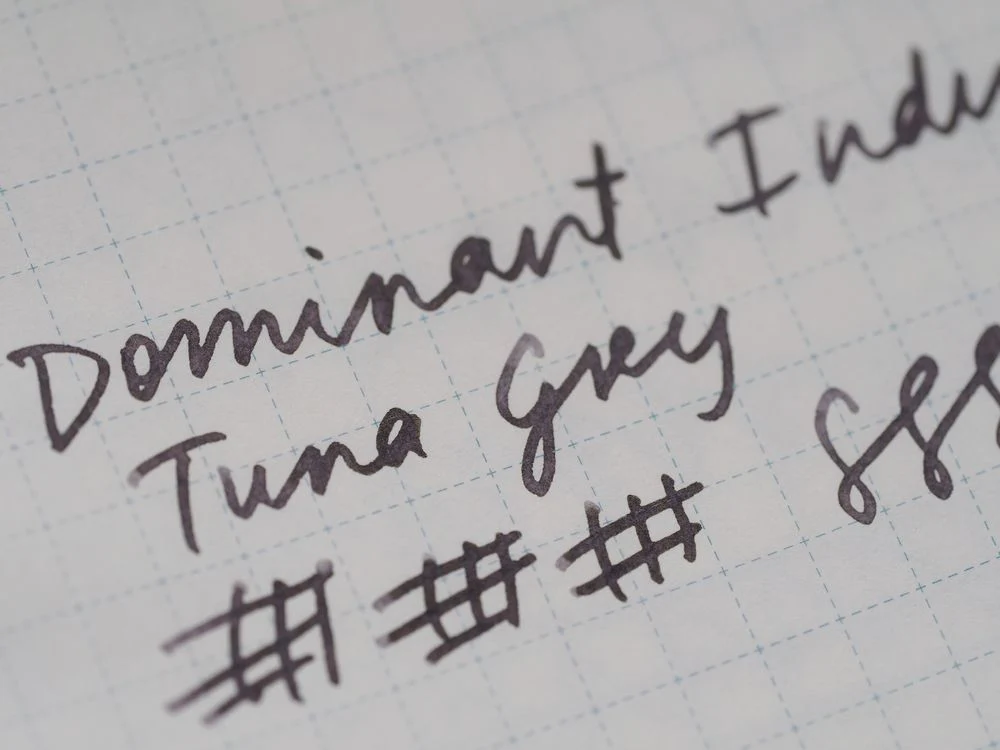 Dominant Indu
Tuna Grey
### 888